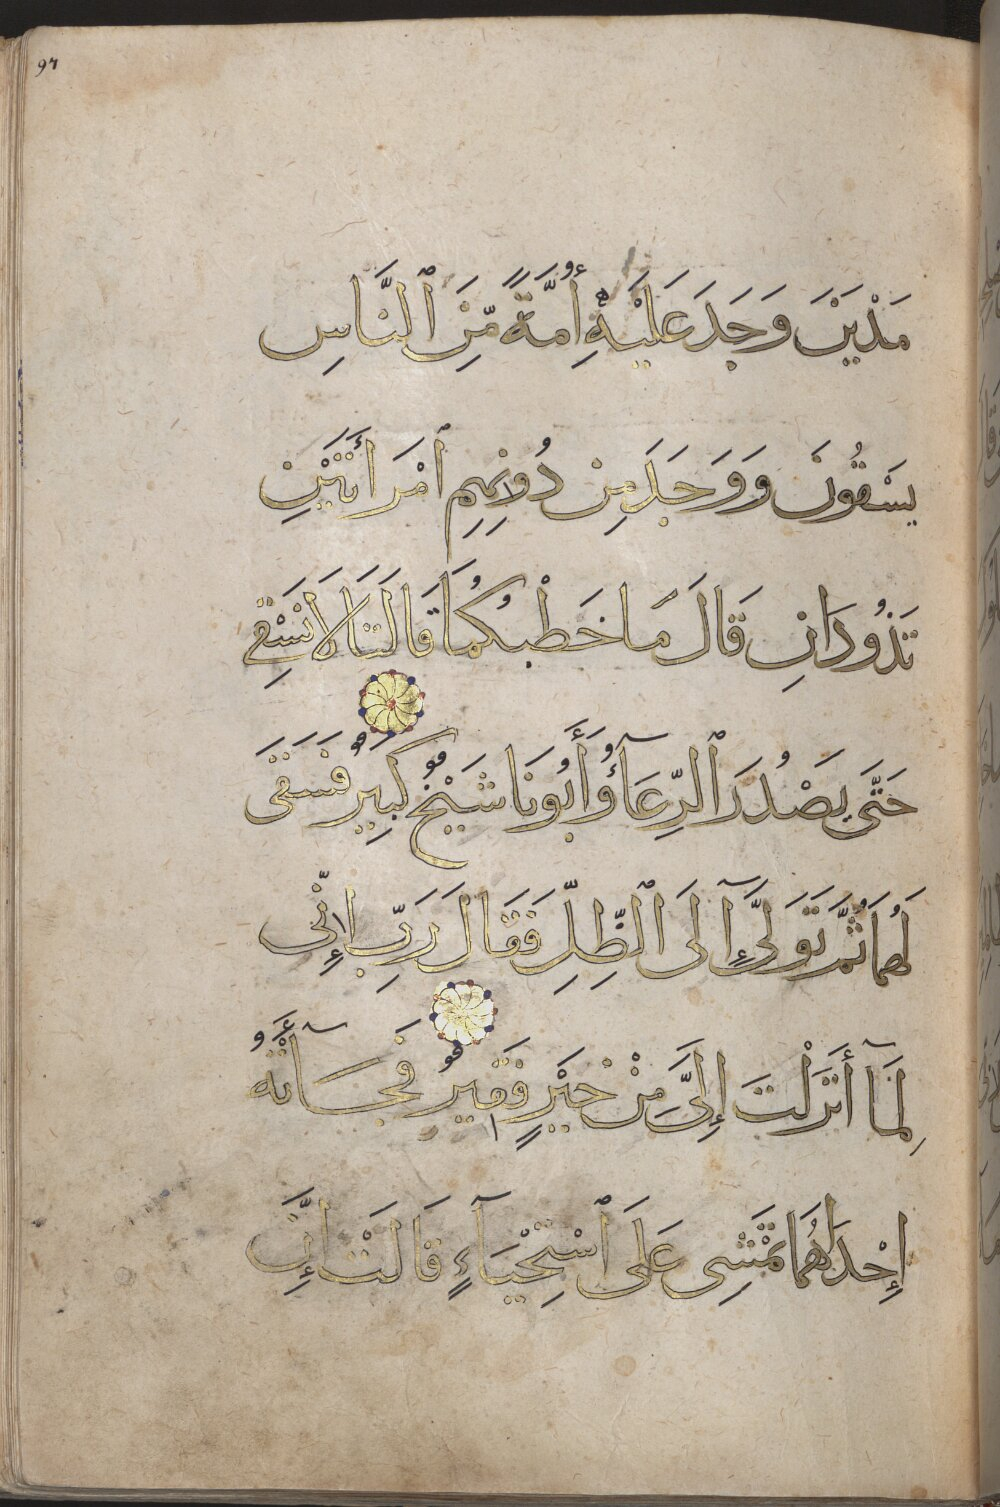 97
مَدْيَنَ وَجَدَ عَلَيْهِ أُمَّةً مِّنَ ٱلنَّاسِ
يَسْقُونَ وَوَجَدَ مِن دُونِهِمِ ٱمْرَأَتَيْنِ
تَذُودَانِ قَالَ مَا خَطْبُكُمَا قَالَتَا لَا نَسْقِي
حَتَّى يَصْدُرَ ٱلرِّعَآءُ وَأَبُونَا شَيْخٌ كَبِيرٌ فَسَقَى
لَهُمَا ثُمَّ تَوَلَّىٰٓ إِلَى ٱلظِّلِّ فَقَالَ رَبِّ إِنِّي
لِمَآ أَنزَلْتَ إِلَيَّ مِنْ خَيْرٍ فَقِيرٌ فَجَآءَتْهُ
إِحْدَاهُمَا تَمْشِي عَلَى ٱسْتِحْيَآءٍ قَالَتْ إِنَّ